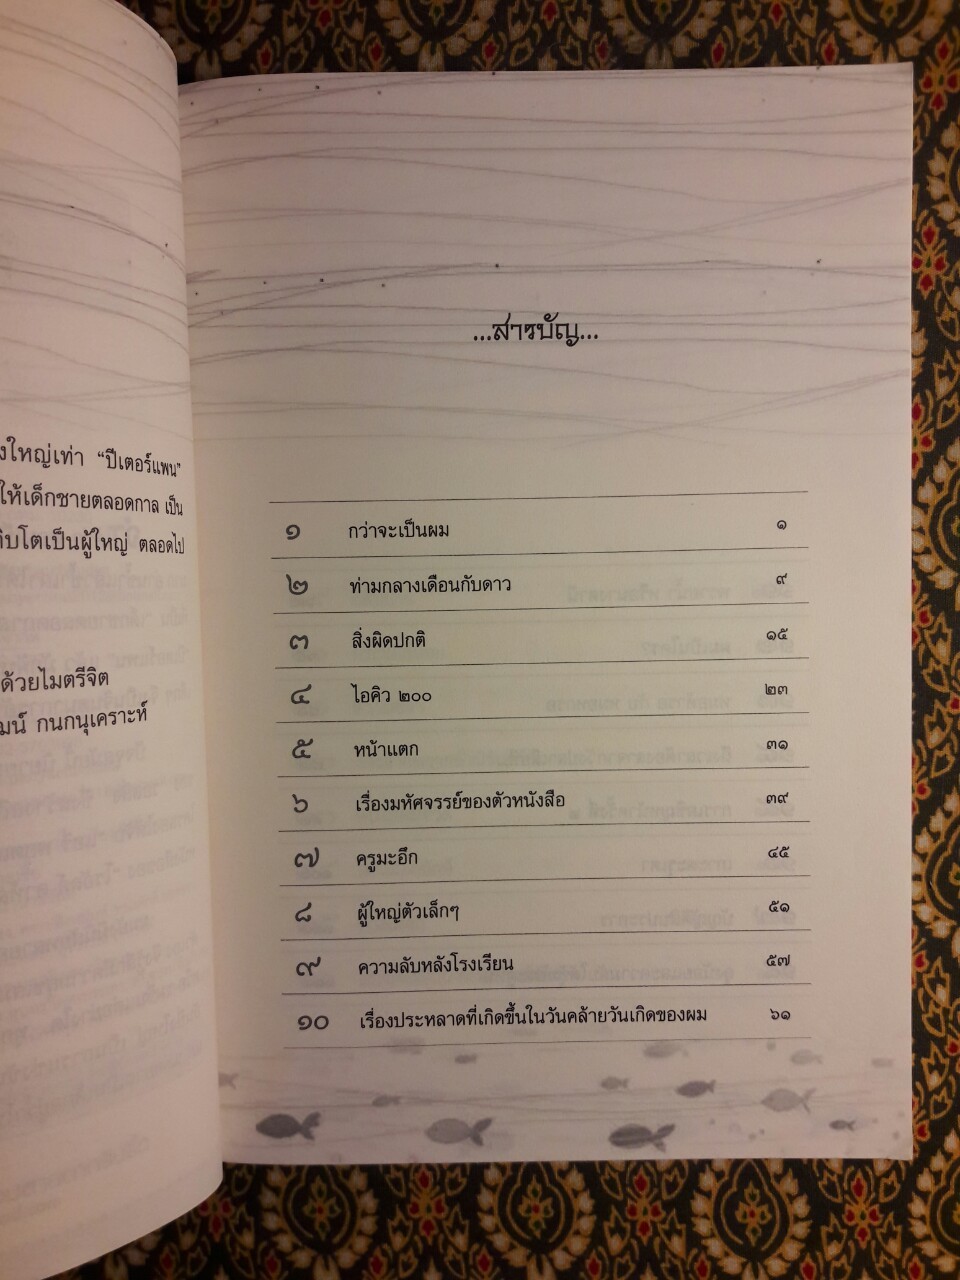 ใหญ่เท่า “ปีเตอร์แพน”
ให้เด็กชายตลอดกาล เป็น
โตเป็นผู้ใหญ่ ตลอดไป
ด้วยไมตรีจิต
กนกนุเคราะห์
...สารบัญ...
๑ กว่าจะเป็นผม ๑
๒ ท่ามกลางเดือนกับดาว ๙
๓ สิ่งผิดปกติ ๑๕
๔ ไอคิว ๒๐๐ ๒๓
๕ หน้าแตก ๓๑
๖ เรื่องมหัศจรรย์ของตัวหนังสือ ๓๙
๗ ครูมะอึก ๔๕
๘ ผู้ใหญ่ตัวเล็กๆ ๕๑
๙ ความลับหลังโรงเรียน ๕๗
๑๐ เรื่องประหลาดที่เกิดขึ้นในวันคล้ายวันเกิดของผม ๖๑